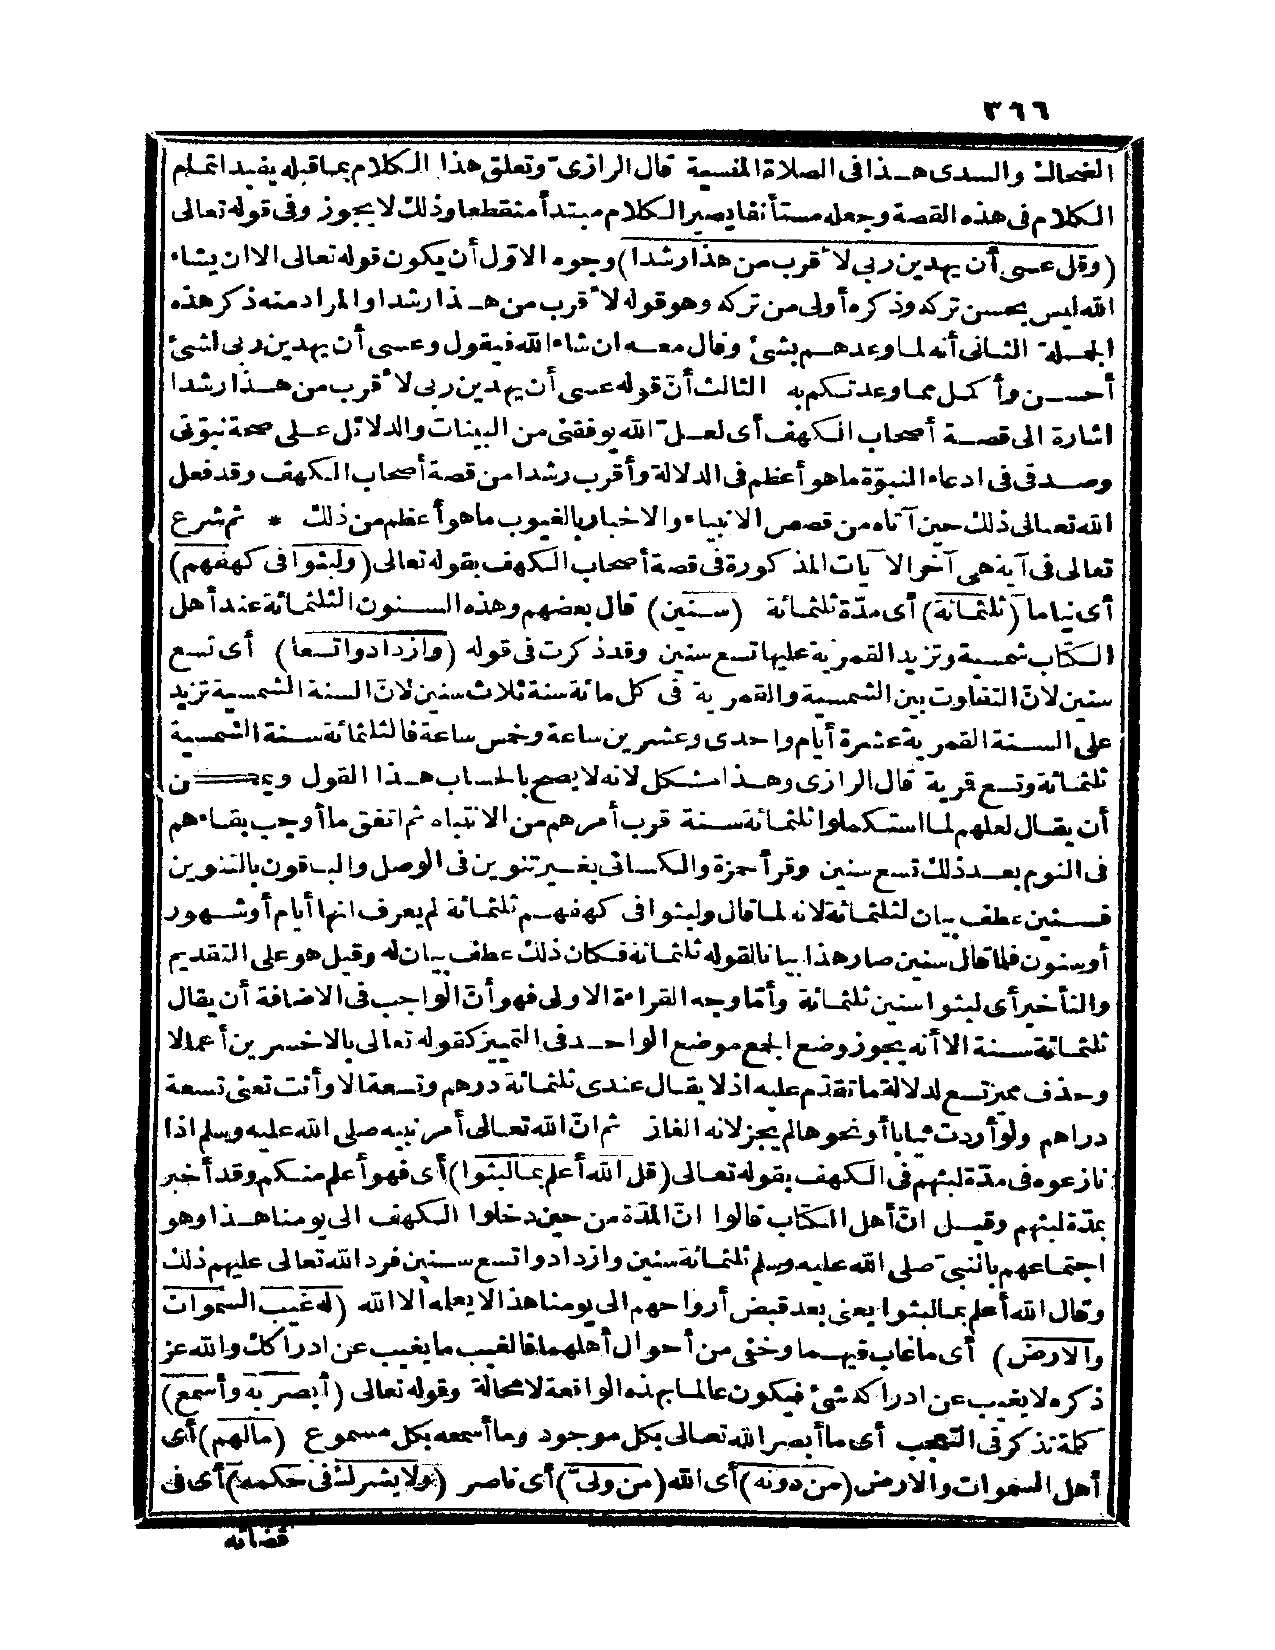 ٣٦٦
الضحاك والسدى هذا فى الصلاة المنسية قال الرازى وتعلق هذا الكلام بما قبله يفيد اتمام
الكلام فى هذه القصة وجعله مستأنفا يصير الكلام مبتدأ منقطعا وذلك لا يجوز وفى قوله تعالى
(وقل عسى أن يهدين ربى لأقرب من هذا رشدا) وجوه الاوّل أن يكون قوله تعالى الا ان يشاء
الله ليس يحسن تركه وذكره أولى من تركه وهو قوله لأقرب من هذا رشدا والمراد منه ذكر هذه
الجملة الثانى أنه لما وعدهم بشئ وقال معه ان شاء الله فيقول وعسى أن يهدين ربى لشئ
أحسن وأكمل مما وعدتكم به الثالث أنّ قوله عسى أن يهدين ربى لأقرب من هذا رشدا
اشارة الى قصة أصحاب الكهف أى لعلّ الله يوفقنى من البينات والدلائل على صحة نبوّتى
وصدقى فى ادعاء النبوّة ما هو أعظم فى الدلالة وأقرب رشدا من قصة أصحاب الكهف وقد فعل
الله تعالى ذلك حين آتاه من قصص الانبياء والاخبار بالغيوب ما هو أعظم من ذلك * ثم شرع
تعالى فى آية هى آخر الآيات المذكورة فى قصة أصحاب الكهف بقوله تعالى (ولبثوا فى كهفهم)
أى نياما (ثلثمائة) أى مدّة ثلثمائة (سنين) قال بعضهم وهذه السنون الثلثمائة عند أهل
الكتاب شمسية وتزيد القمرية عليها تسع سنين وقد ذكرت فى قوله (وازدادوا تسعا) أى تسع
سنين لانّ التفاوت بين الشمسية والقمرية فى كل مائة سنة ثلاث سنين لانّ السنة الشمسية تزيد
على السنة القمرية عشرة أيام واحدى وعشرين ساعة وخمس ساعة فالثلثمائة سنة الشمسية
ثلثمائة وتسع قمرية قال الرازى وهذا مشكل لانه لا يصح بالحساب هذا القول ويمكن
أن يقال لعلهم لما استكملوا ثلثمائة سنة قرب أمرهم من الانتباه ثم اتفق ما أوجب بقاءهم
فى النوم بعد ذلك تسع سنين وقرأ حمزة والكسائى بغير تنوين فى الوصل والباقون بالتنوين
فسنين عطف بيان لثلثمائة لانه لما قال ولبثوا فى كهفهم ثلثمائة لم يعرف انها أيام أو شهور
أو سنون فلما قال سنين صار هذا بيانا لقوله ثلثمائة فكان ذلك عطف بيان له وقيل هو على التقديم
والتأخير أى لبثوا سنين ثلثمائة وأمّا وجه القراءة الاولى فهو أنّ الواجب فى الاضافة أن يقال
ثلثمائة سنة الا أنه يجوز وضع الجمع موضع الواحد فى التمييز كقوله تعالى بالاخسرين أعمالا
وحذف مميز تسع لدلالة ما تقدّم عليه اذ لا يقال عندى ثلثمائة درهم وتسعة الا وأنت تعنى تسعة
دراهم ولو أردت ثيابا أو نحوها لم يجز لانه الغاز ثم انّ الله تعالى أمر نبيه صلى الله عليه وسلم اذا
نازعوه فى مدّة لبثهم فى الكهف بقوله تعالى (قل الله أعلم بما لبثوا) أى فهو أعلم منكم وقد أخبر
بمدّة لبثهم وقيل انّ أهل الكتاب قالوا انّ المدّة من حين دخلوا الكهف الى يومنا هذا وهو
اجتماعهم بالنبىّ صلى الله عليه وسلم ثلثمائة سنين وازدادوا تسع سنين فرد الله تعالى عليهم ذلك
وقال الله أعلم بما لبثوا يعنى بعد قبض أرواحهم الى يومنا هذا لا يعلمه الا الله (له غيب السموات
والارض) أى ما غاب فيهما وخفى من أحوال أهلهما فالغيب ما يغيب عن ادراكك والله عز
ذكره لا يغيب عن ادراكه شئ فيكون عالما بهذه الواقعة لا محالة وقوله تعالى (أبصر به وأسمع)
كلمة تذكر فى التعجب أى ما أبصر الله تعالى بكل موجود وما أسمعه بكل مسموع (مالهم) أى
أهل السموات والارض (من دونه) أى الله (من ولىّ) أى ناصر (ولا يشرك فى حكمه) أى فى
قضائه